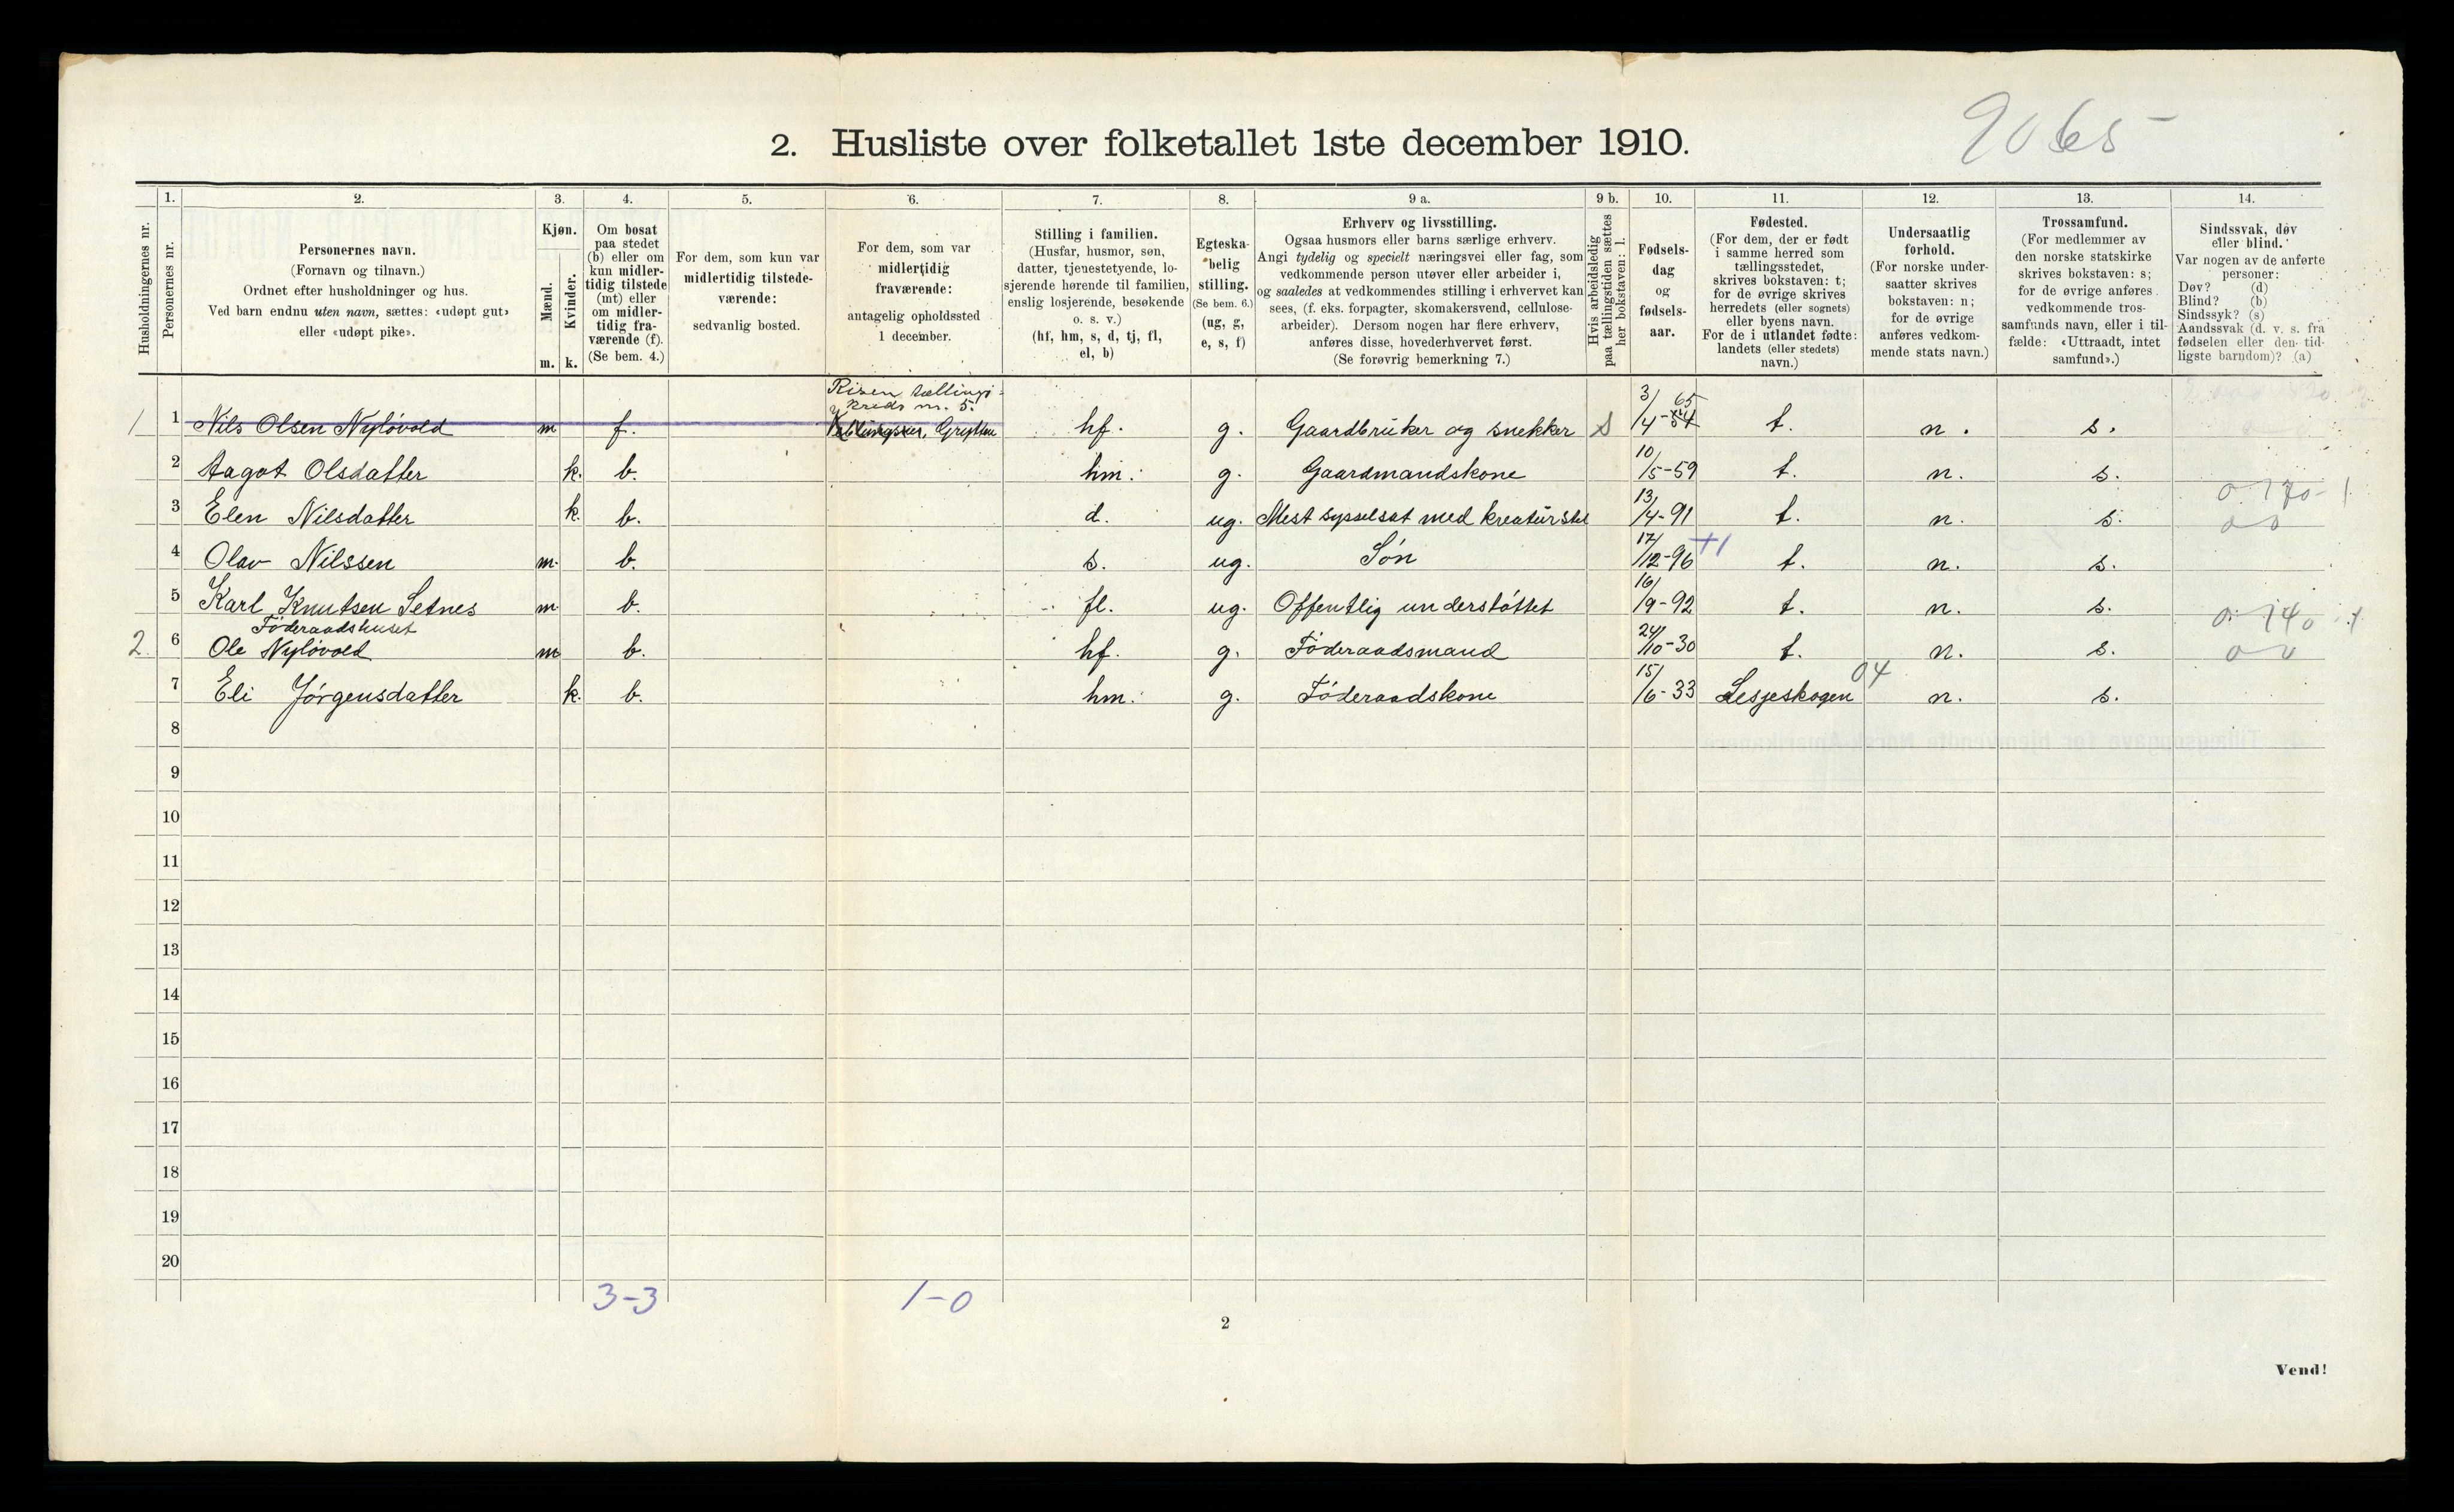 9065
2. Husliste over folketallet 1ste december 1910.
Husholdningernes nr.
1.
Personernes nr.
2.
Personernes navn.
(Fornavn og tilnavn.)
Ordnet efter husholdninger og hus.
Ved barn endnu uten navn, sættes: «udøpt gut»
eller «udøpt pike».
3.
Kjøn.
Mænd.
Kvinder.
m. k.
4.
Om bosat
paa stedet
(b) eller om
kun midler-
tidig tilstede
(mt) eller
om midler-
tidig fra-
værende (f).
(Se bem. 4.)
5.
For dem, som kun var
midlertidig tilstede-
værende:
sedvanlig bosted.
6.
For dem, som var
midlertidig
fraværende:
antagelig opholdssted
1 december.
7.
Stilling i familien.
(Husfar, husmor, søn,
datter, tjenestetyende, lo-
sjerende hørende til familien,
enslig losjerende, besøkende
o. s. v.)
(hf, hm, s, d, tj, fl,
el, b)
8.
Egteska-
belig
stilling.
(Se bem. 6.)
(ug, g,
e, s, f)
9 a.
Erhverv og livsstilling.
Ogsaa husmors eller barns særlige erhverv.
Angi tydelig og specielt næringsvei eller fag, som
vedkommende person utøver eller arbeider i,
og saaledes at vedkommendes stilling i erhvervet kan
sees, (f. eks. forpagter, skomakersvend, cellulose-
arbeider). Dersom nogen har flere erhverv,
anføres disse, hovederhvervet først.
(Se forøvrig bemerkning 7.)
9 b.
Hvis arbeidsledig
paa tællingstiden sættes
her bokstaven: l.
10.
Fødsels-
dag
og
fødsels-
aar.
11.
Fødested.
(For dem, der er født
i samme herred som
tællingsstedet,
skrives bokstaven: t;
for de øvrige skrives
herredets (eller sognets)
eller byens navn.
For de i utlandet fødte:
landets (eller stedets)
navn.)
12.
Undersaatlig
forhold.
(For norske under-
saatter skrives
bokstaven: n;
for de øvrige
anføres vedkom-
mende stats navn.)
13.
Trossamfund.
(For medlemmer av
den norske statskirke
skrives bokstaven: s;
for de øvrige anføres
vedkommende tros-
samfunds navn, eller i til-
fælde: «Uttraadt, intet
samfund».)
14.
Sindssvak, døv
eller blind.
Var nogen av de anførte
personer:
Døv? (d)
Blind? (b)
Sindssyk? (s)
Aandssvak (d. v. s. fra
fødselen eller den tid-
ligste barndom)? (a)
Risen tællings-
kreds nr. 5.
1 1 Nils Olsen Nyløvold m f. Grytten hf. g. Gaardbruker og snekker S 3/4-54 65 t. n. s.
2 Aagot Olsdatter k. b. hm. g. Gaardmandskone 10/5-59 t. n. s.
3 Elen Nilsdatter k. b. d. ug. Mest sysselsat med kreaturstel 13/4-91 t. n. s.
4 Olav Nilssen m. b. s. ug. Søn 17/12-96 +1 t. n. s.
5 Karl Knutsen Setnes m. b. fl. ug. Offentlig understøttet 16/9-92 t. n. s.
Føderaadshuset
2 6 Ole Nyløvold m b. hf. g. Føderaadsmand 24/10-30 t. n. s.
7 Eli Jørgensdatter k. b. hm. g. Føderaadskone 15/6-33 Lesjeskogen 04 n. s.
8
9
10
11
12
13
14
15
16
17
18
19
20
3-3 1-0
2
Vend!